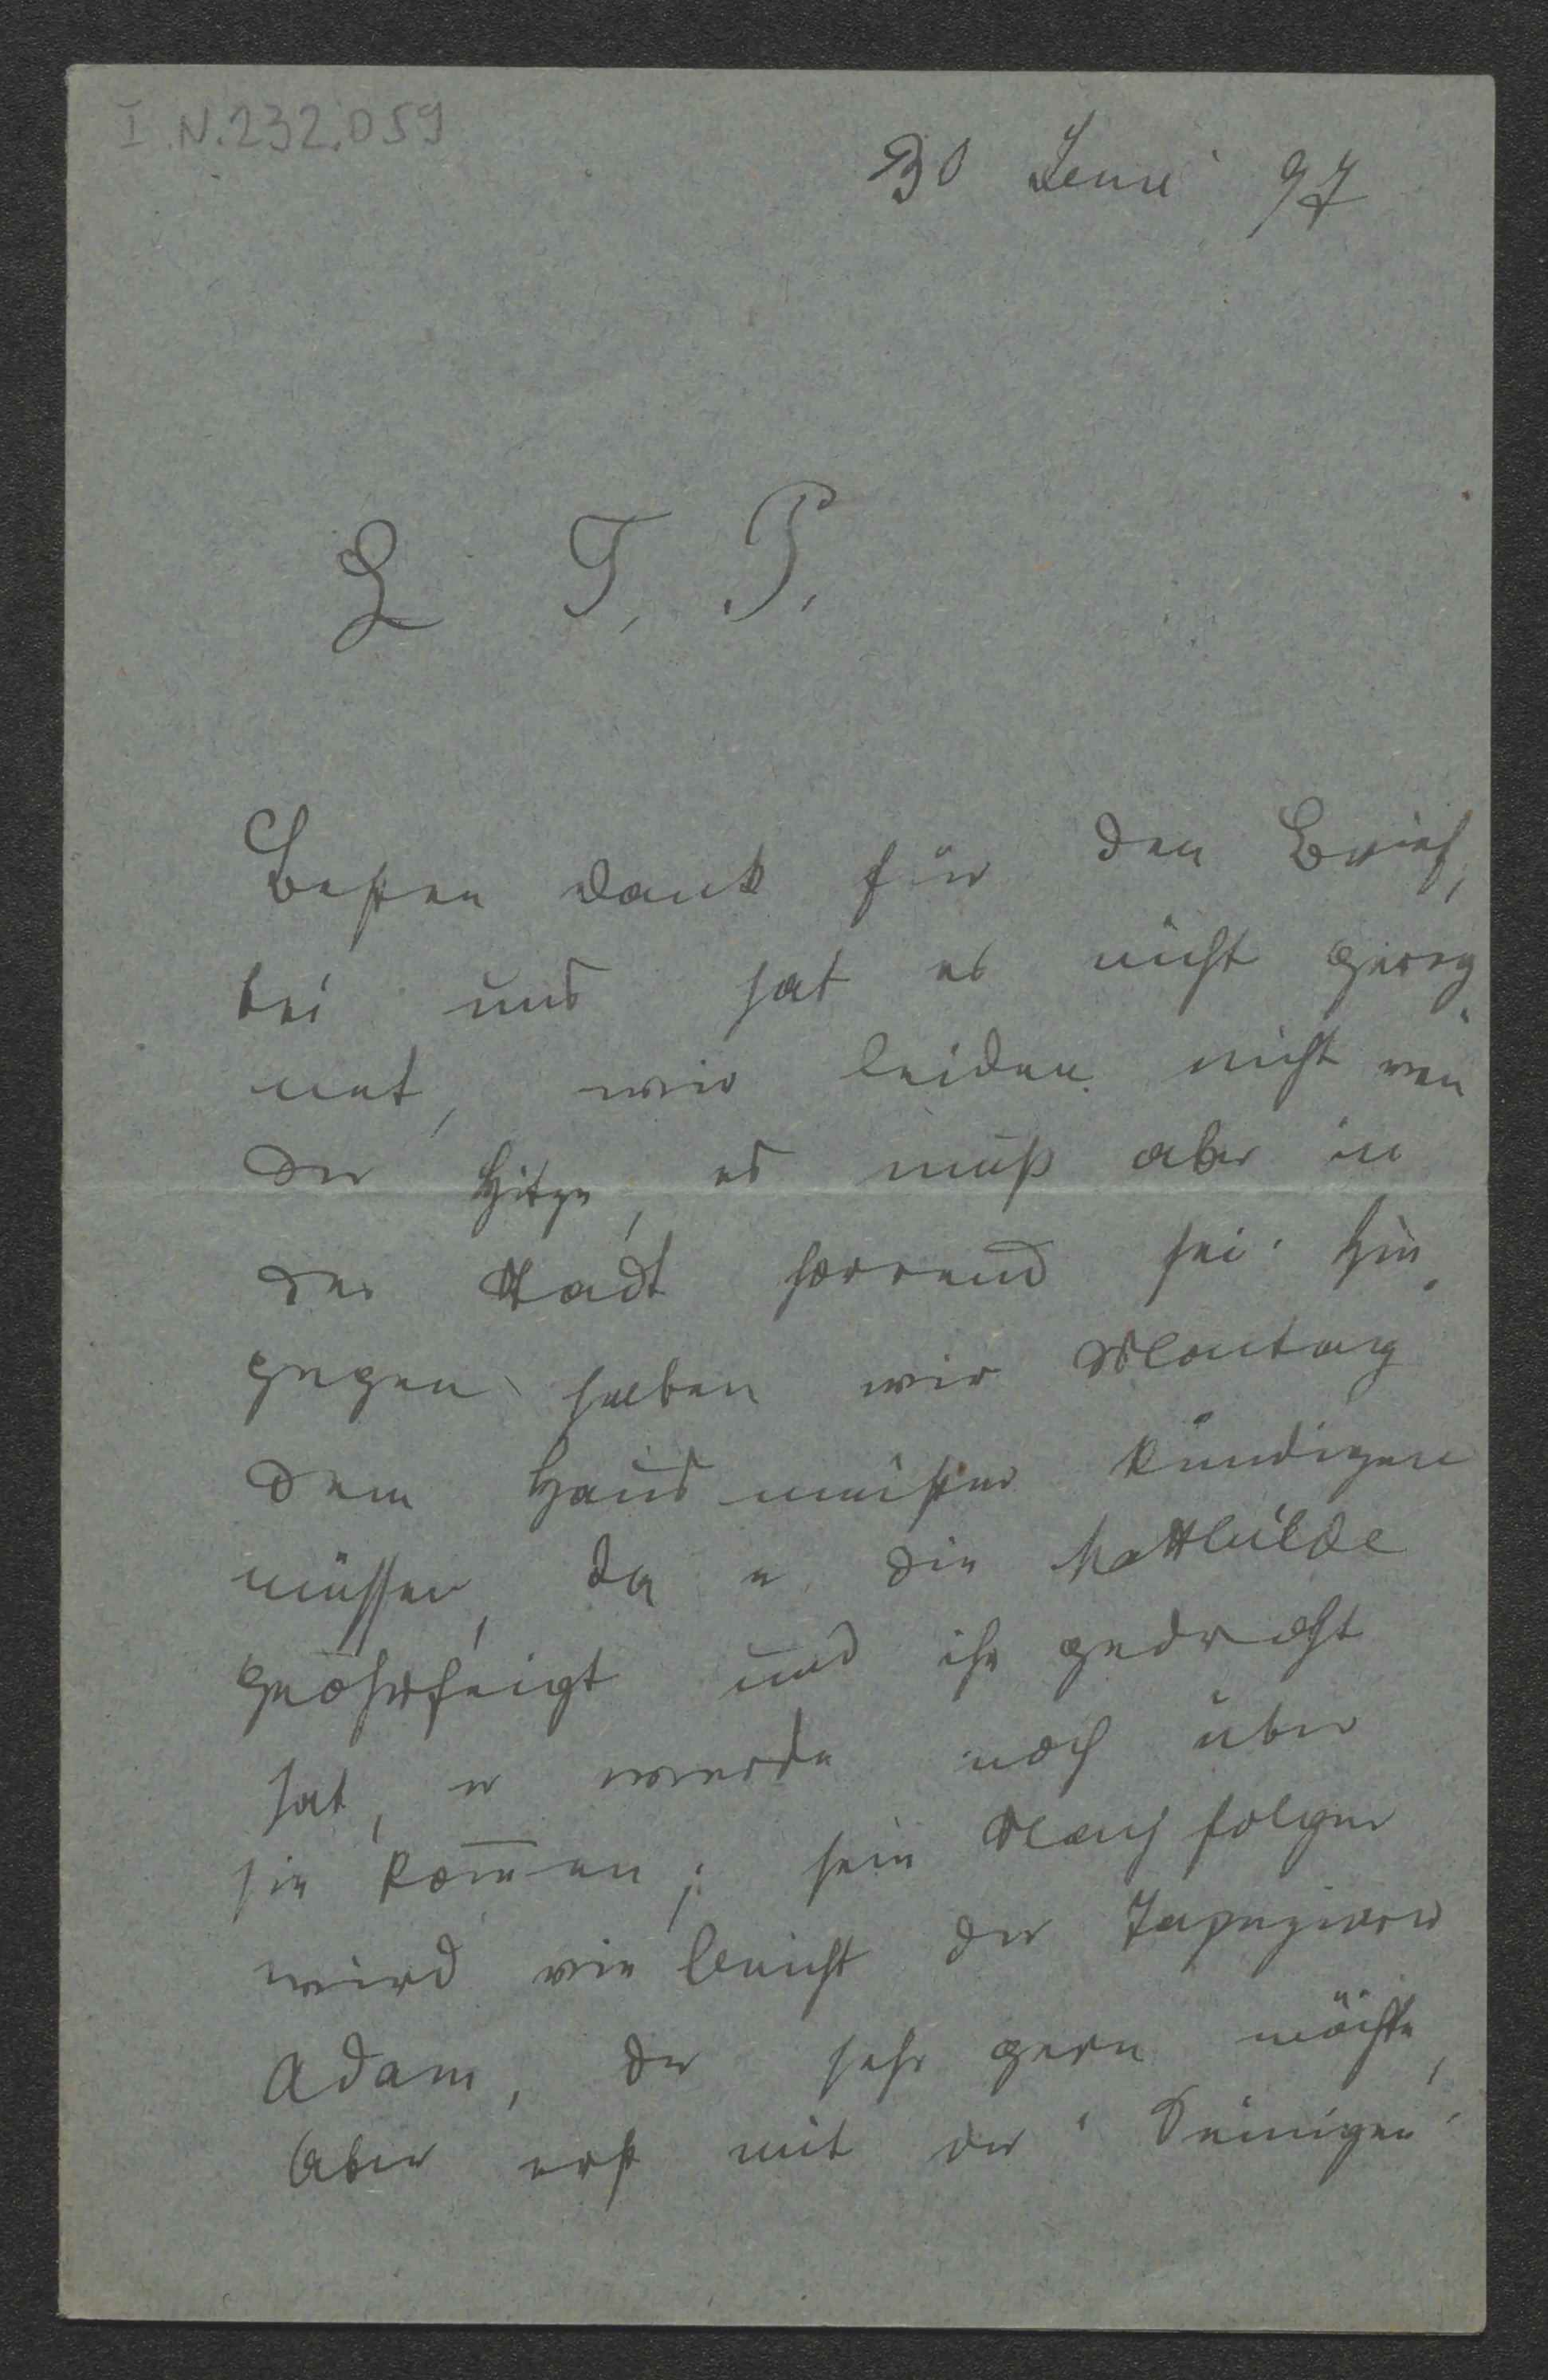 I. N. 232.059
30 Juni 97
L T. P.
Besten Dank für den Brief,
bei uns hat es nicht gereg
net, wir leiden nicht von
der Hitze, es muß aber in
der Stadt horrend sei. Hin
gegen haben wir Montag
dem Hausmeister kündigen
müssen, da er die Mathilde
geohrfeigt und ihr gedroht
hat, er werde noch über
sie kom̅en; sein Nachfolger
wird vielleicht der Tapezierer
Adam, der sehr gern möchte,
aber erst mit der "Seinigen"